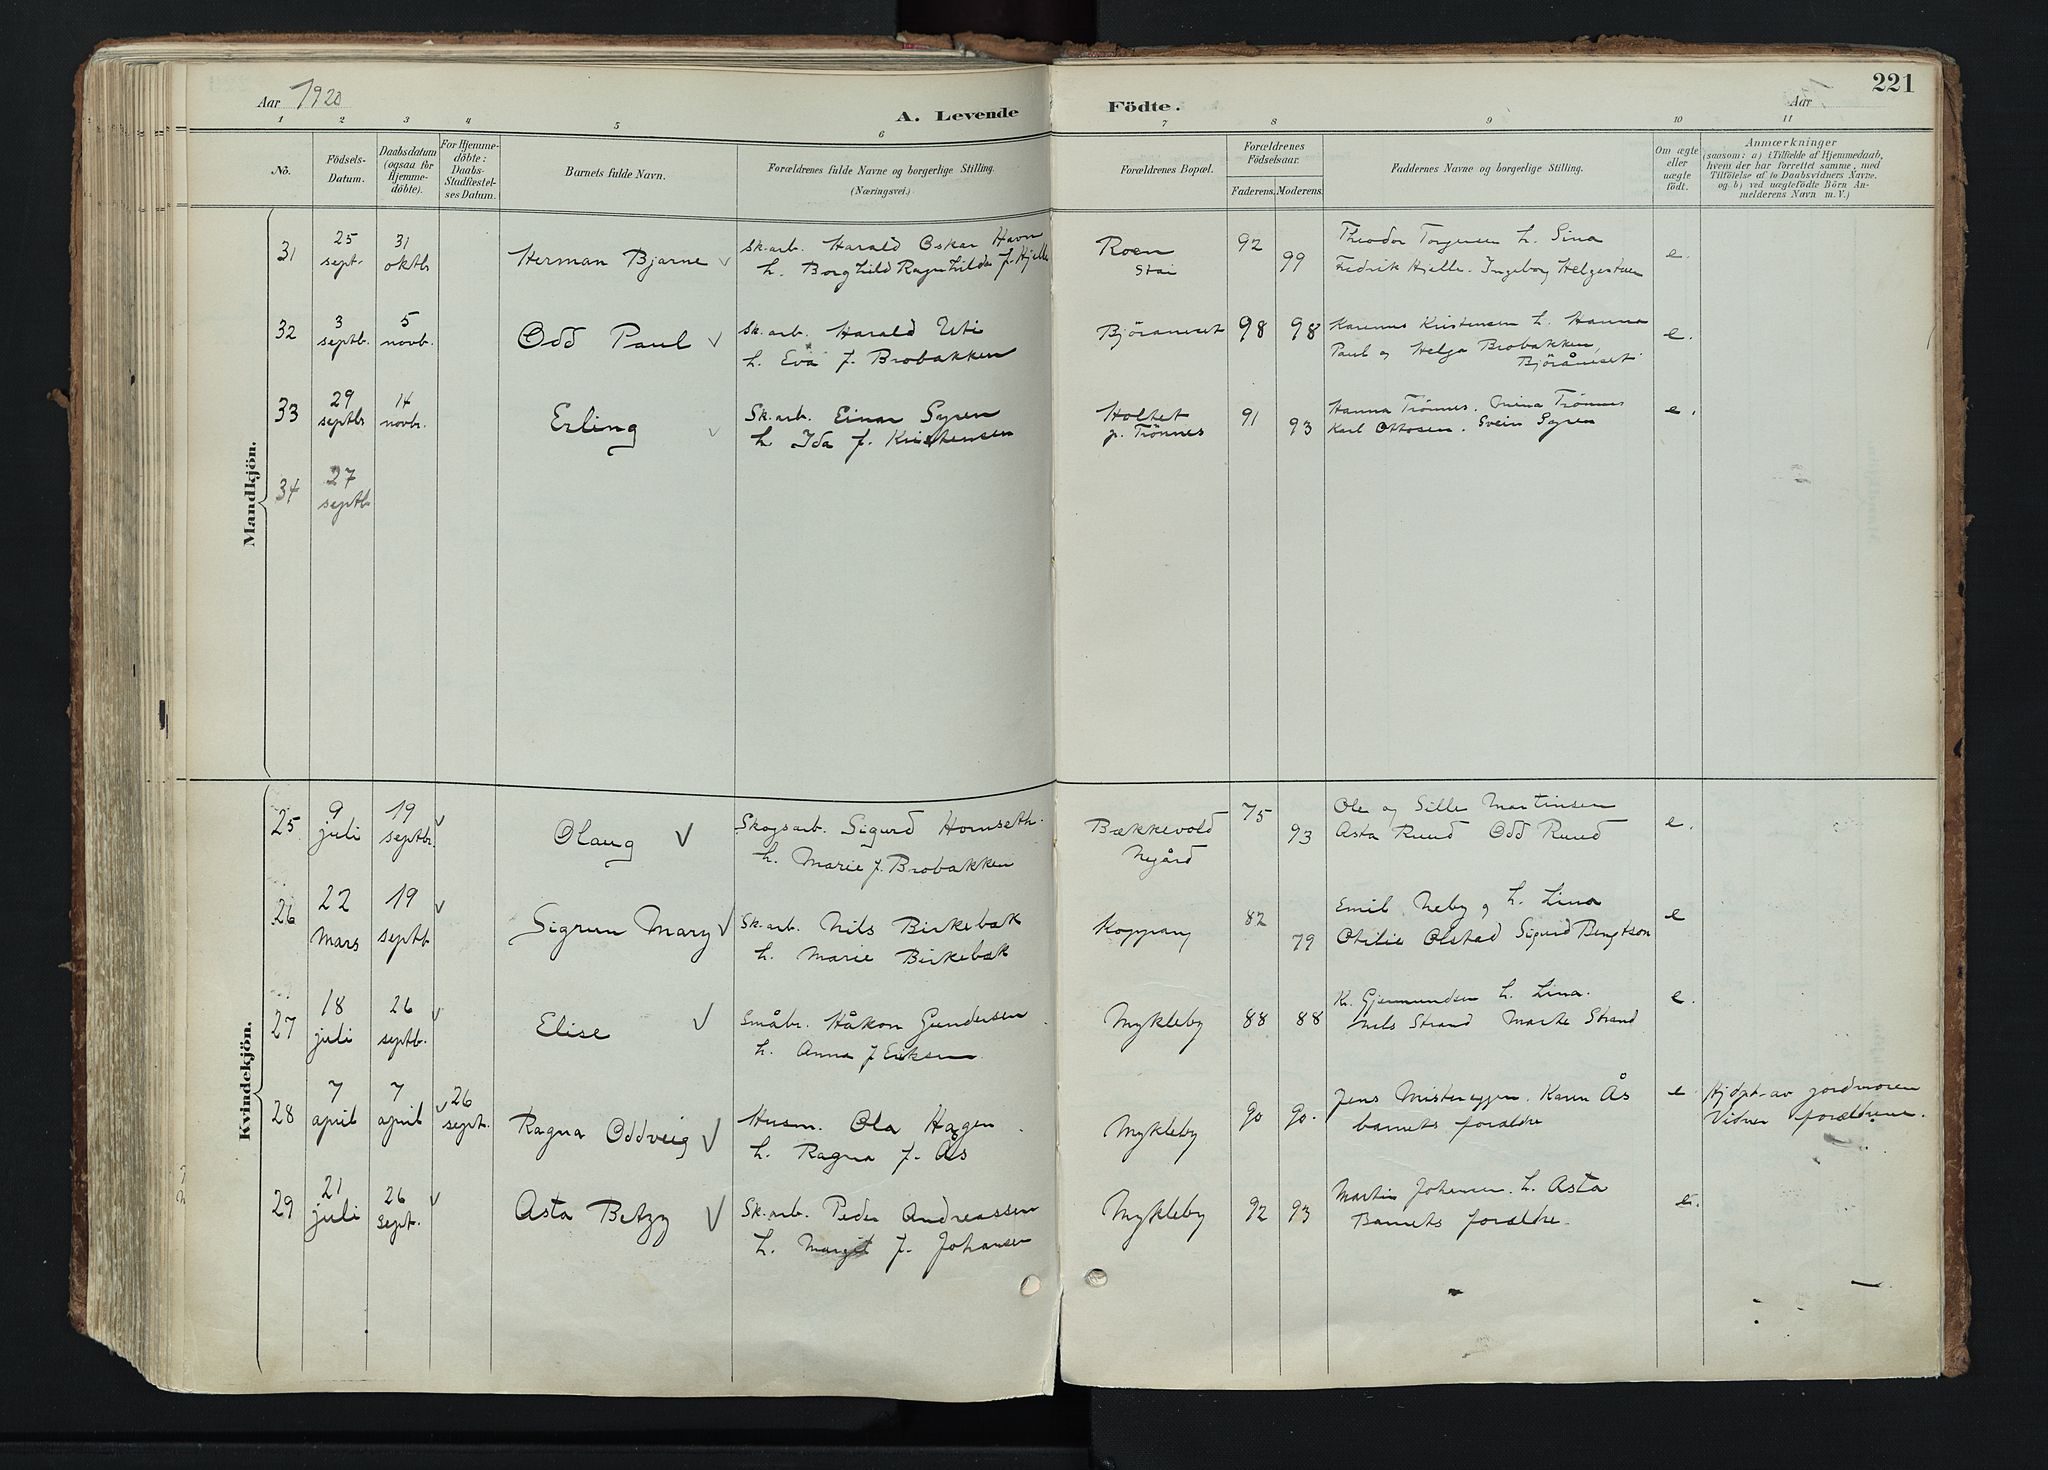 Aar 1920
A. Levende Födte.
Aar
221
1 2 3 4 5 6 7 8 9 10 11
No.
Födsels-Datum.
Daabsdatum (ogsaa for Hjemme-döbte).
For Hjemme-döbte: Daabs-Stadfæstel-ses Datum.
Barnets fulde Navn.
Forældrenes fulde Navne og borgerlige Stilling.
(Næringsvei.)
Forældrenes Bopæl.
Forældrenes Födselsaar.
Faderens. Moderens.
Faddernes Navne og borgerlige Stilling.
Om ægte eller uægte födt.
Anmærkninger
(saasom: a) i Tilfælde af Hjemmedaab,
hvem der har forrettet samme, med
Tilföielse af to Daabsvidners Navne.
og b) ved uægtefödte Börn An-
melderens Navn m. V.)
Mandkjön.
31 25 sept. 31 oktbr Herman Bjarne
Sk.arb. Harald Oskar Havn
h. Borghild Ragnhilda f. Hjelle
Roen
Stai
92 99
Theodor Torgersen h. Sina
Fredrik Hjelle. Ingeborg Helgestuen
e.
32 3 septb. 5 novb. Odd Paul
Sk.arb. Harald Uti
h. Eva f. Brobakken
Björaneset
98 98
Karenus Kristensen h. Hanna
Paul og Helga Brobakken,
Björåneset.
e.
33 29 septbr 14 novbr. Erling
Sk.arb. Einar Gyren
h. Ida f. Kristensen
Holtet
p. Trönnes
91 93
Hanna Trönnes. Mina Trönnes
Karl Ottosen. Svein Gyren
e.
34 27 septb.
Kvindekjön.
25 9 juli 19 septbr. Olaug
Skogsarb. Sigurd Hornseth.
h. Marie f. Brobakken
Bækkevold
Negård
75 93
Ole og Sille Martinsen
Asta Ruud Odd Ruud
e.
26 22 Mars 19 septb. Sigrun Mary
Sk.arb. Nils Birkebæk
h. Marie Birkebæk
Koppang
82 79
Emil Neby og h. Lina
Otilie Olstad Sigurd Bengtson
e
27 18 juli 26 septb. Elise
Småbr. Håkon Gundersen
h. Anna f Eriksen.
Mykleby
88 88
K. Gjermundsen h. Lina.
Nils Strand Marte Strand
e.
28 7 april 7 april 26 sept. Ragna Oddveig
Husm. Ola Hagen
h. Ragna f. Ås
Mykleby
90 90.
Jens Misteregggen. Karen Ås
barnets foraldre
e
Hjdpt. av jordmoren
Vidner foraldrene.
29 21 juli 26 sept. Asta Betzy
Sk.arb. Peder Andreassen
h. Margit f. Johansen
Mykleby
92 93
Martin Johansen. h. Asta
Barnets foraldre.
e.